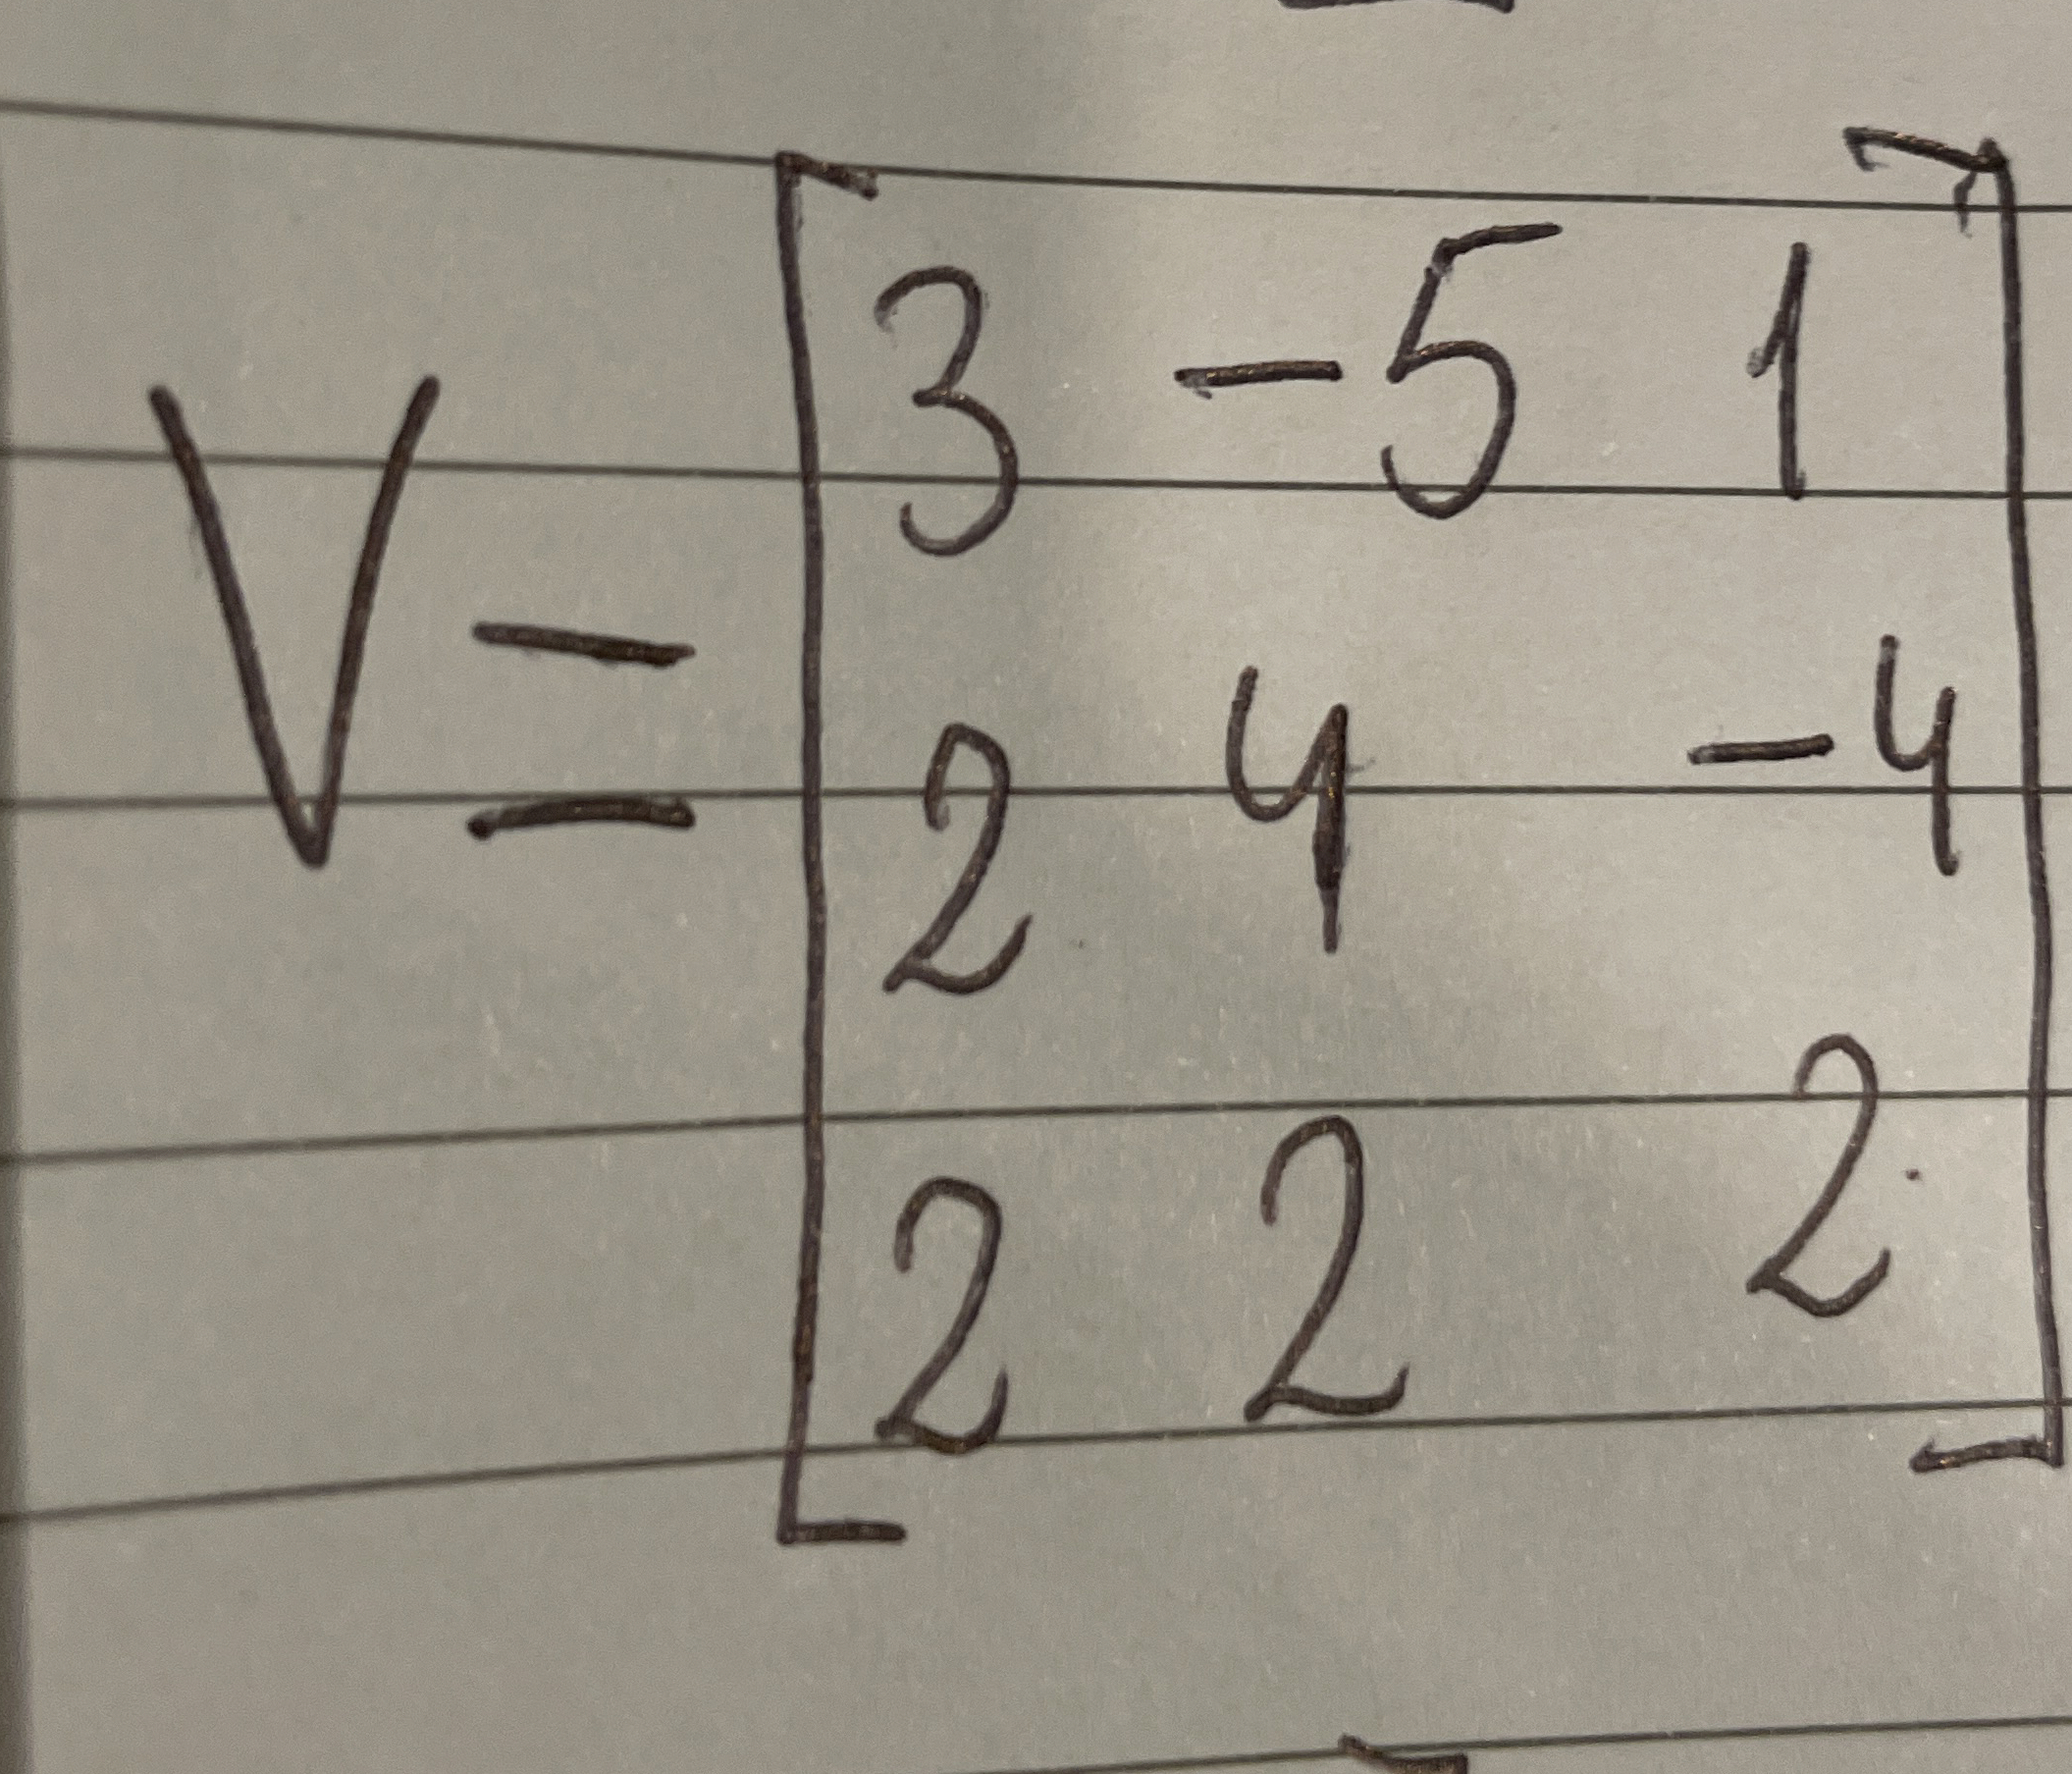 V = [3 -5 1
2 4 -4
2 2 2]